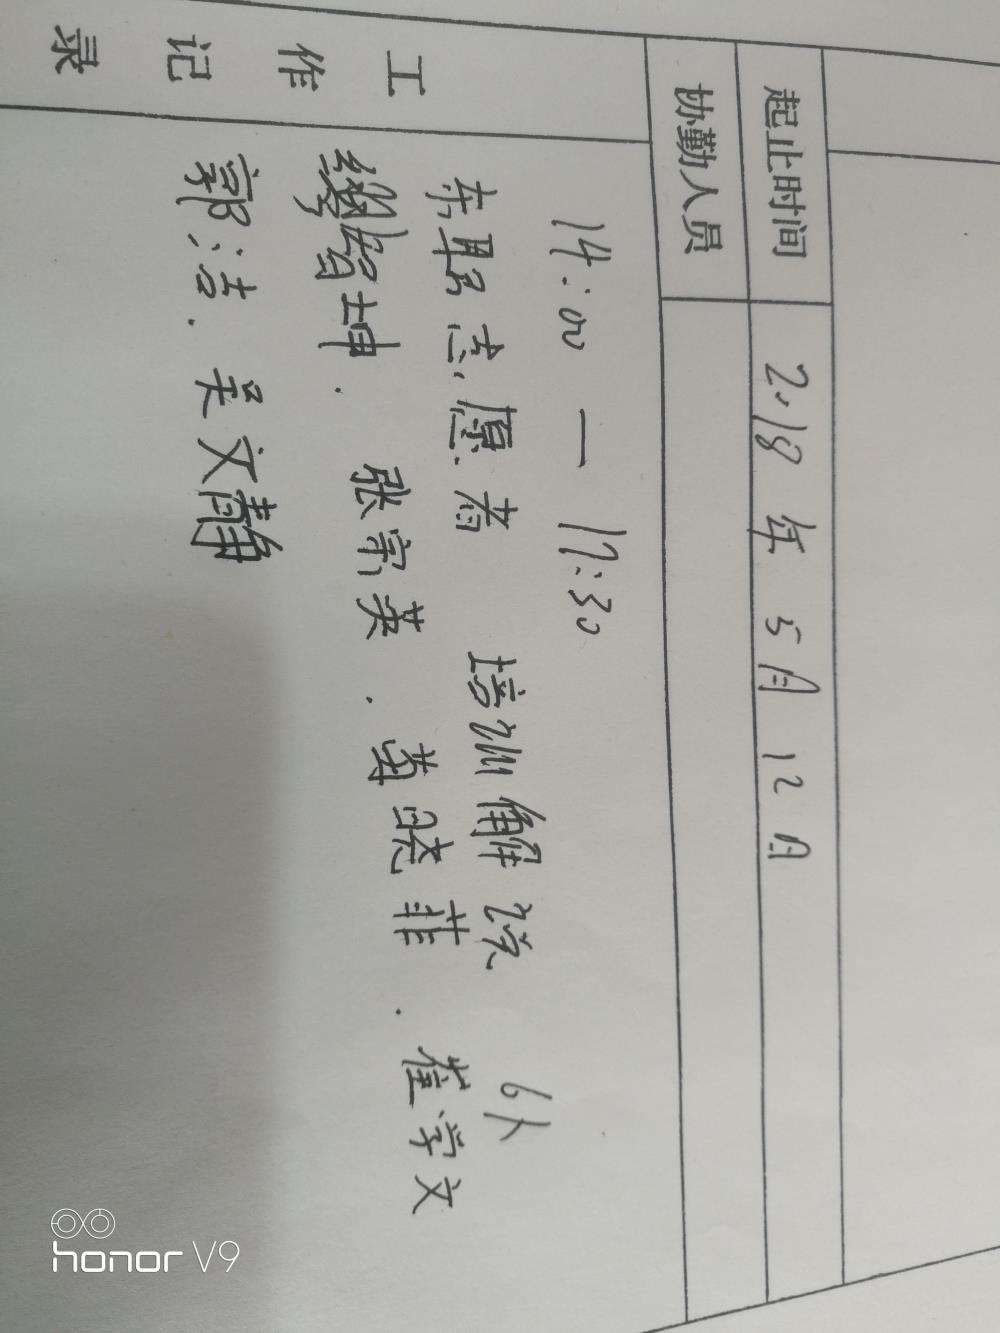 起止时间 2018年5月12日
协勤人员
工作记录
14:00 — 17:30
东县志愿者 培训解说 6人
智坤. 张宗英. 黄晓菲. 崔学文
郭洁. 吴文静
honor V9